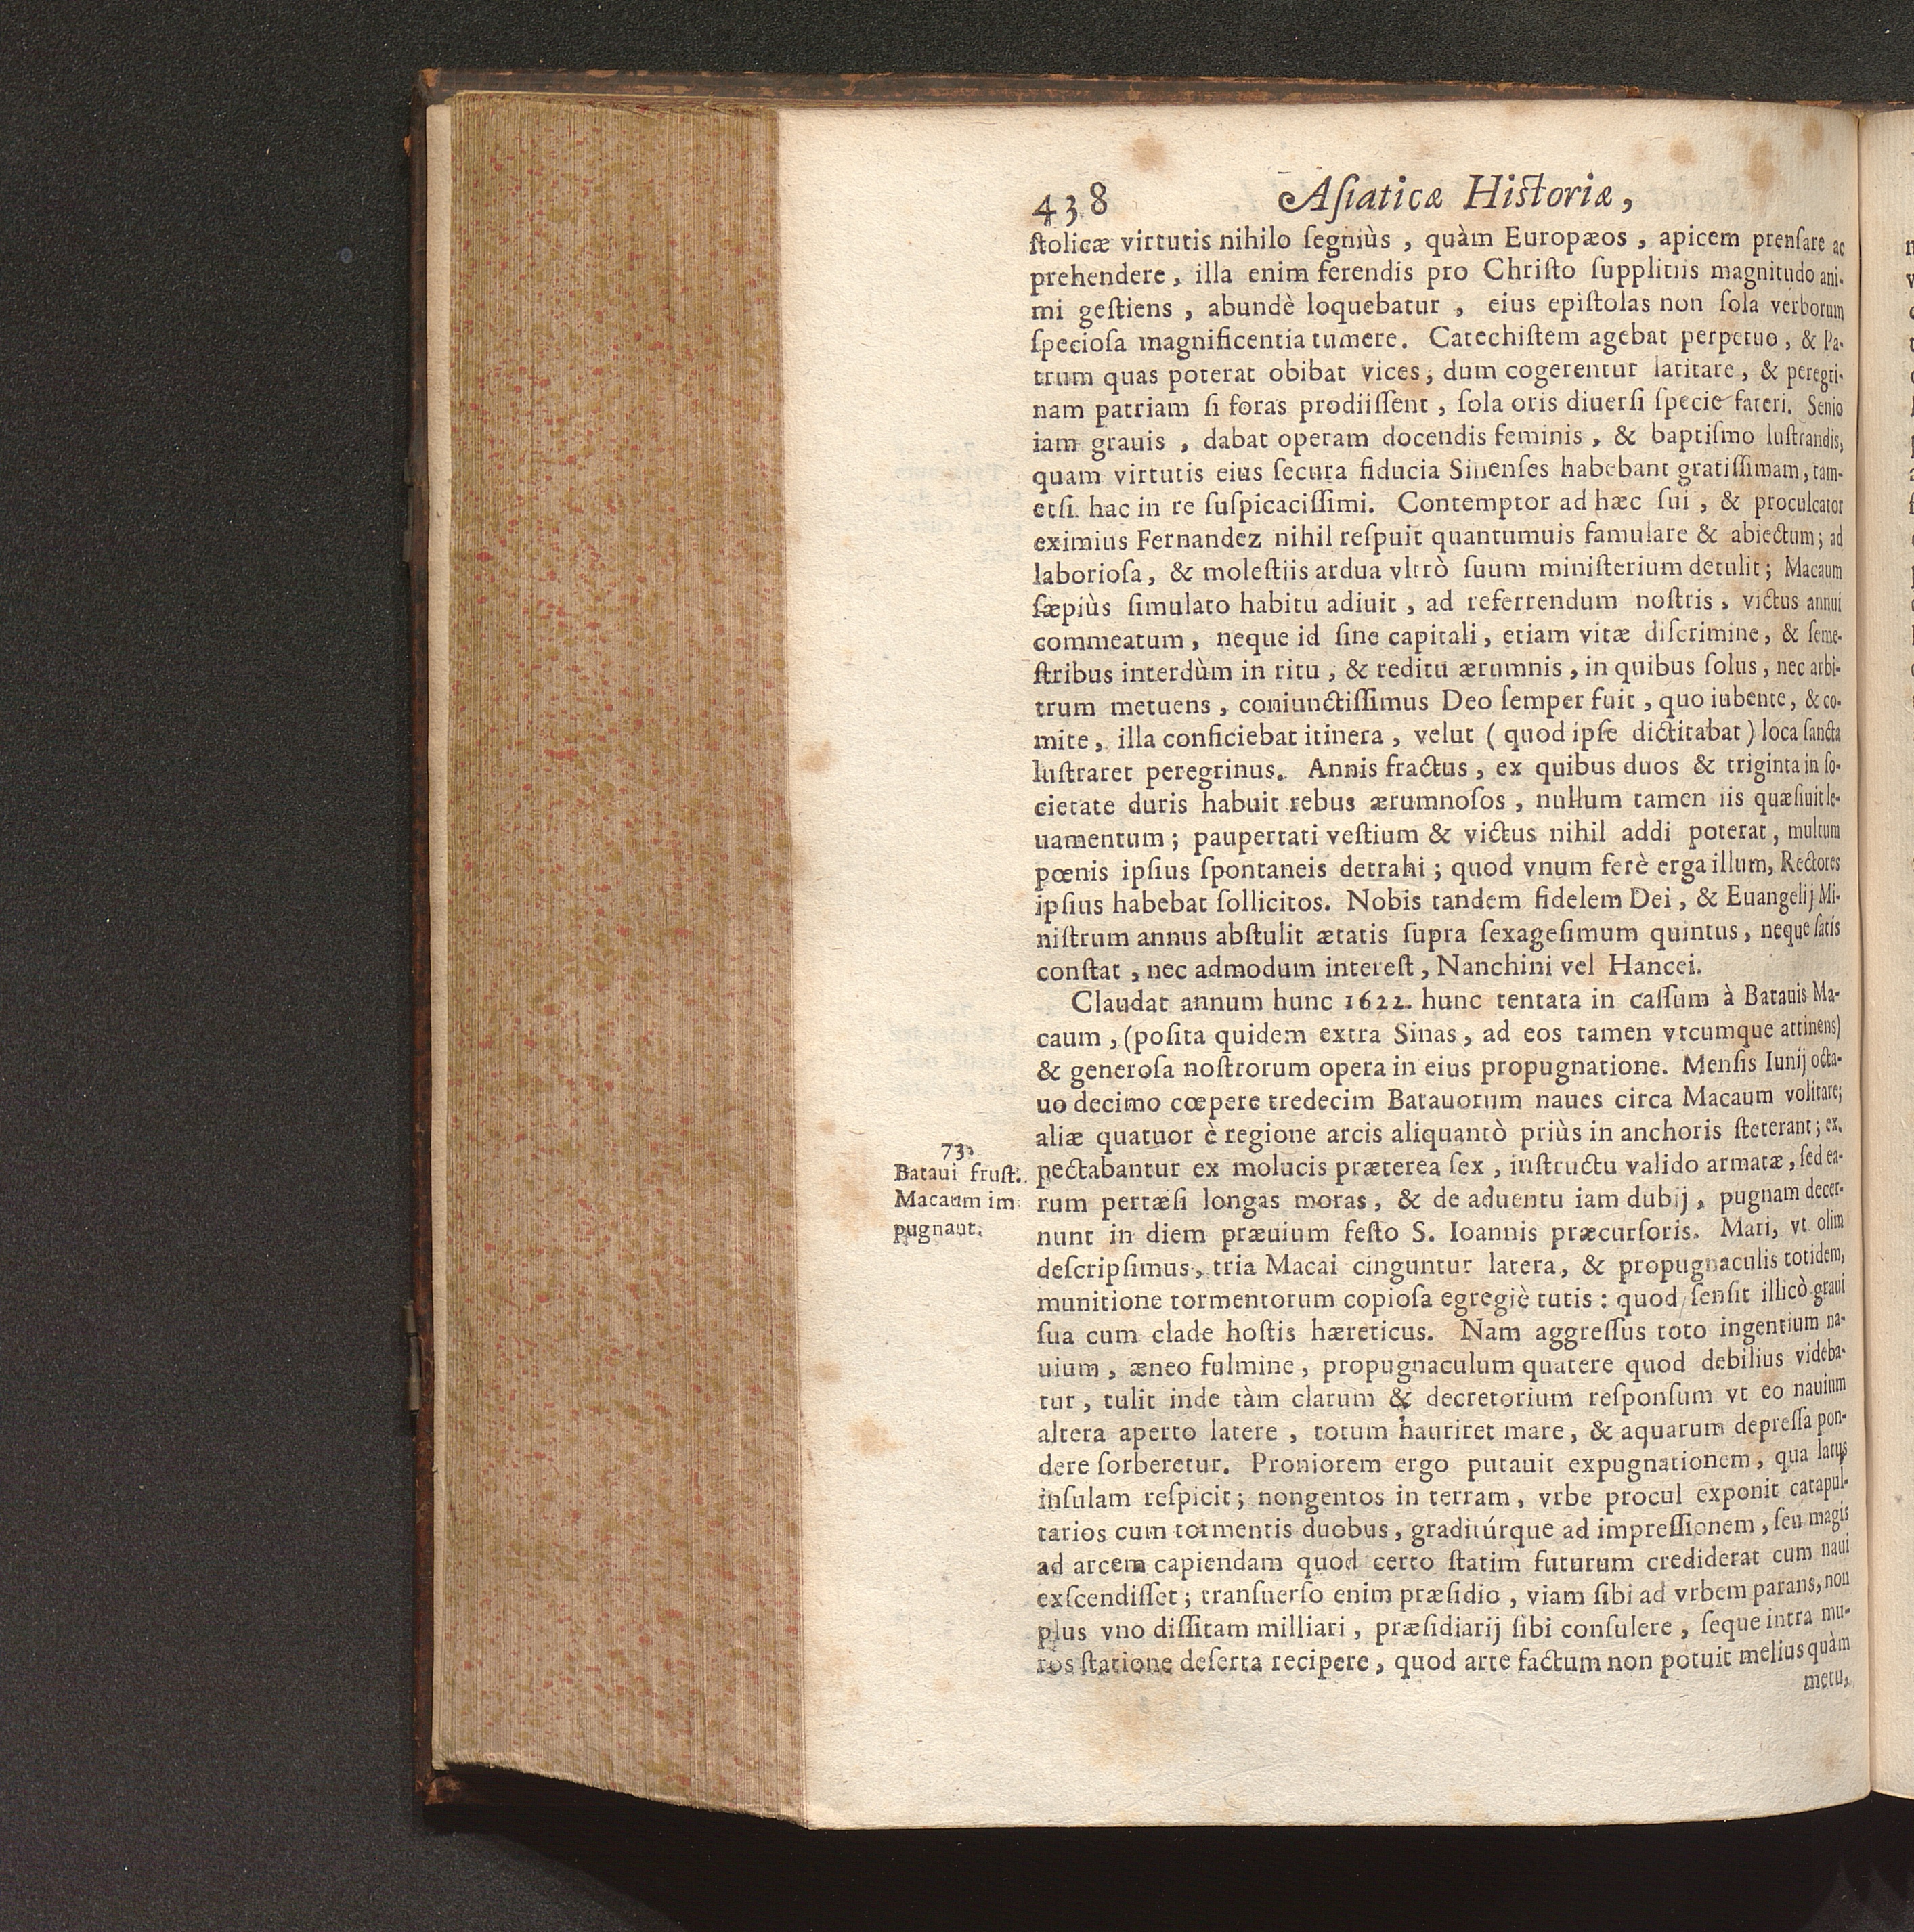 438 Aſiaticæ Hiſtoriæ,
ſtolicæ virtutis nihilo ſegniùs, quàm Europæos, apicem prenſare ac
prehendere, illa enim ferendis pro Chriſto ſupplitiis magnitudo ani-
mi geſtiens, abundè loquebatur, eius epiſtolas non ſola verborum
ſpecioſa magnificentia tumere. Catechiſtem agebat perpetuo, & Pa-
trum quas poterat obibat vices, dum cogerentur latitare, & peregri-
nam patriam ſi foras prodiiſſent, ſola oris diuerſi ſpecie fateri. Senio
iam grauis, dabat operam docendis feminis, & baptiſmo luſtrandis,
quam virtutis eius ſecura fiducia Sinenſes habebant gratiſſimam, tam-
etſi hac in re ſuſpicaciſſimi. Contemptor ad hæc ſui, & proculcator
eximius Fernandez nihil reſpuit quantumuis famulare & abiectum; ad
laborioſa, & moleſtiis ardua vltrò ſuum miniſterium detulit; Macaum
ſæpiùs ſimulato habitu adiuit, ad referrendum noſtris, victus annui
commeatum, neque id ſine capitali, etiam vitæ diſcrimine, & ſeme-
ſtribus interdùm in ritu, & reditu ærumnis, in quibus ſolus, nec arbi-
trum metuens, coniunctiſſimus Deo ſemper fuit, quo iubente, & co-
mite, illa conficiebat itinera, velut (quod ipſe dictitabat) loca ſancta
luſtraret peregrinus. Annis fractus, ex quibus duos & triginta in ſo-
cietate duris habuit rebus ærumnoſos, nullum tamen iis quæſiuit le-
uamentum; paupertati veſtium & victus nihil addi poterat, multum
pœnis ipſius ſpontaneis detrahi; quod vnum ferè erga illum, Rectores
ipſius habebat ſollicitos. Nobis tandem fidelem Dei, & Euangelij Mi-
niſtrum annus abſtulit ætatis ſupra ſexageſimum quintus, neque ſatis
conſtat, nec admodum intereſt, Nanchini vel Hancei.
Claudat annum hunc 1622. hunc tentata in caſſum à Batauis Ma-
caum, (poſita quidem extra Sinas, ad eos tamen vtcumque attinens)
& generoſa noſtrorum opera in eius propugnatione. Menſis Iunij octa-
uo decimo cœpere tredecim Batauorum naues circa Macaum volitare;
aliæ quatuor è regione arcis aliquantò priùs in anchoris ſteterant; ex-
pectabantur ex molucis præterea ſex, inſtructu valido armatæ, ſed ea-
rum pertæſi longas moras, & de aduentu iam dubij, pugnam decer-
nunt in diem præuium feſto S. Ioannis præcurſoris. Mari, vt olim
deſcripſimus, tria Macai cinguntur latera, & propugnaculis totidem,
munitione tormentorum copioſa egregiè tutis: quod ſenſit illicò graui
ſua cum clade hoſtis hæreticus. Nam aggreſſus toto ingentium na-
uium, æneo fulmine, propugnaculum quatere quod debilius videba-
tur, tulit inde tàm clarum & decretorium reſponſum vt eo nauium
altera aperto latere, totum hauriret mare, & aquarum depreſſa pon-
dere ſorberetur. Proniorem ergo putauit expugnationem, qua latus
inſulam reſpicit; nongentos in terram, vrbe procul exponit catapul-
tarios cum tormentis duobus, graditúrque ad impreſſionem, ſeu magis
ad arcem capiendam quod certo ſtatim futurum crediderat cum naui
exſcendiſſet; tranſuerſo enim præſidio, viam ſibi ad vrbem parans, non
plus vno diſſitam milliari, præſidiarij ſibi conſulere, ſeque intra mu-
ros ſtatione deſerta recipere, quod arte factum non potuit melius quàm
metu,
73.
Bataui fruſt.
Macaum im
pugnant.